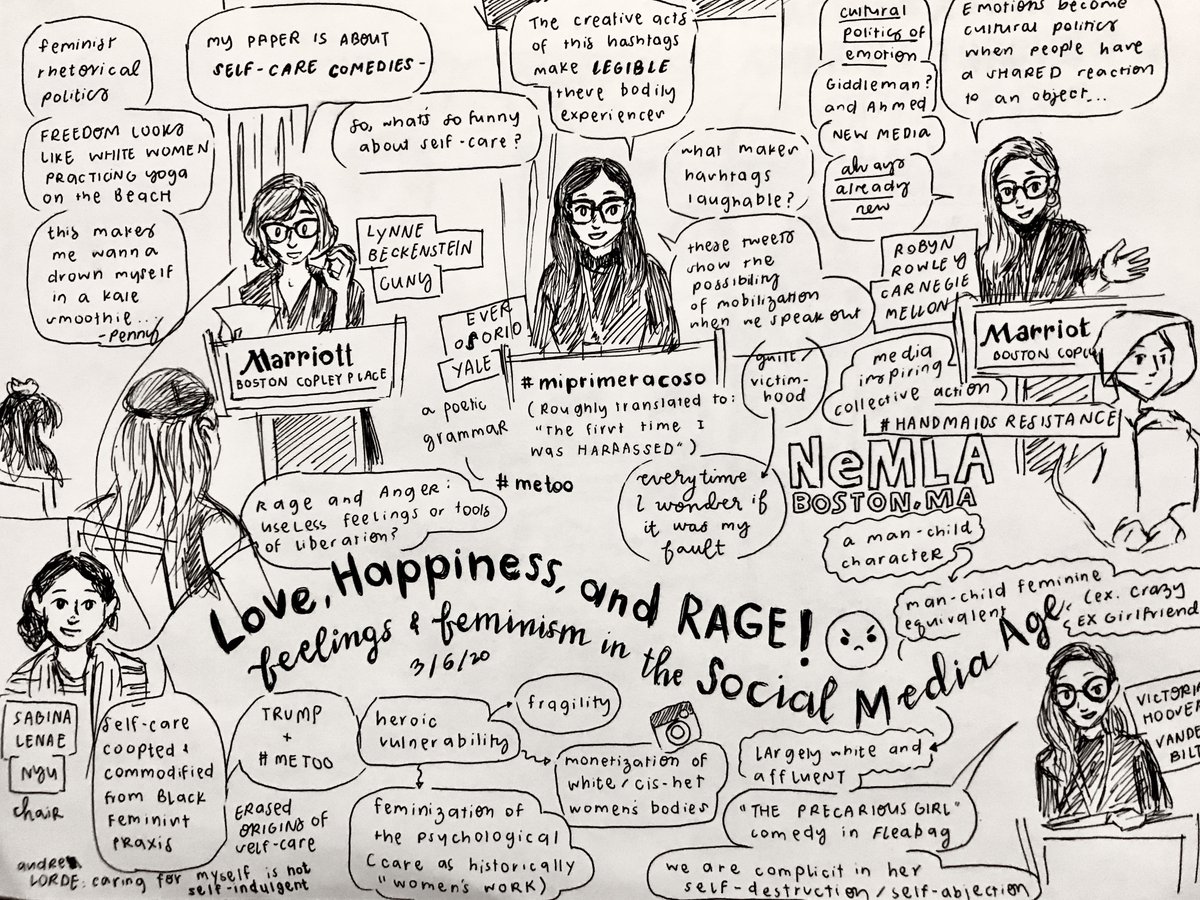 feminist
rhetorical
politics
FREEDOM LOOKS
LIKE WHITE WOMEN
PRACTICING yoga
on the BEACH
this makes
me wanna
drown myself
in a kale
smoothie...
-Penny
MY PAPER IS ABOUT
SELF-CARE COMEDIES-
So, what's so funny
about self-care?
LYNNE
BECKENSTEIN
CUNY
Marriott
BOSTON COPLEY PLACE
The creative acts
of this hashtags
make LEGIBLE
these bodily
experiences
what makes
hashtags
laughable?
these tweets
show the
possibility
of mobilization
when we speak out
EVER
OSORIO
YALE
a poetic
grammar
#metoo
#miprimeracoso
(Roughly translated to:
"The first time I
was HARRASSED")
guilt/
victim-
hood
everytime
I wonder if
it was my
fault
cultural
politics of
emotion
Giddleman?
and Ahmed
NEW MEDIA
always
already
new
Emotions become
cultural politics
when people have
a SHARED reaction
to an object...
ROBYN
ROWLEY
CARNEGIE
MELLON
Marriot
BOSTON COPLY
media
inspiring
collective action)
#HANDMAIDS RESISTANCE
NeMLA
BOSTON, MA
Rage and Anger:
useless feelings or tools
of liberation?
Love, Happiness, and RAGE!
feelings & feminism in the Social Media Age
3/6/20
a man-child
character
man-child feminine
equivalent
(ex. crazy
EX Girlfriend
SABINA
LENAE
NYU
chair
self-care
coopted &
commodified
from Black
Feminist
PRAXIS
TRUMP
+
#METOO
ERASED
ORIGINS of
self-care
LORDE: caring for myself is not
self-indulgent
heroic
vulnerability
fragility
feminization of
the psychological
(care as historically
"women's WORK)
monetization of
white/cis-het
women's bodies
LARgely white and
affluent
"THE PRECARIOUS GIRL"
comedy in Fleabag
we are complicit in her
self-destruction/self-abjection
VICTORIA
HOOVER
VANDE
BILT